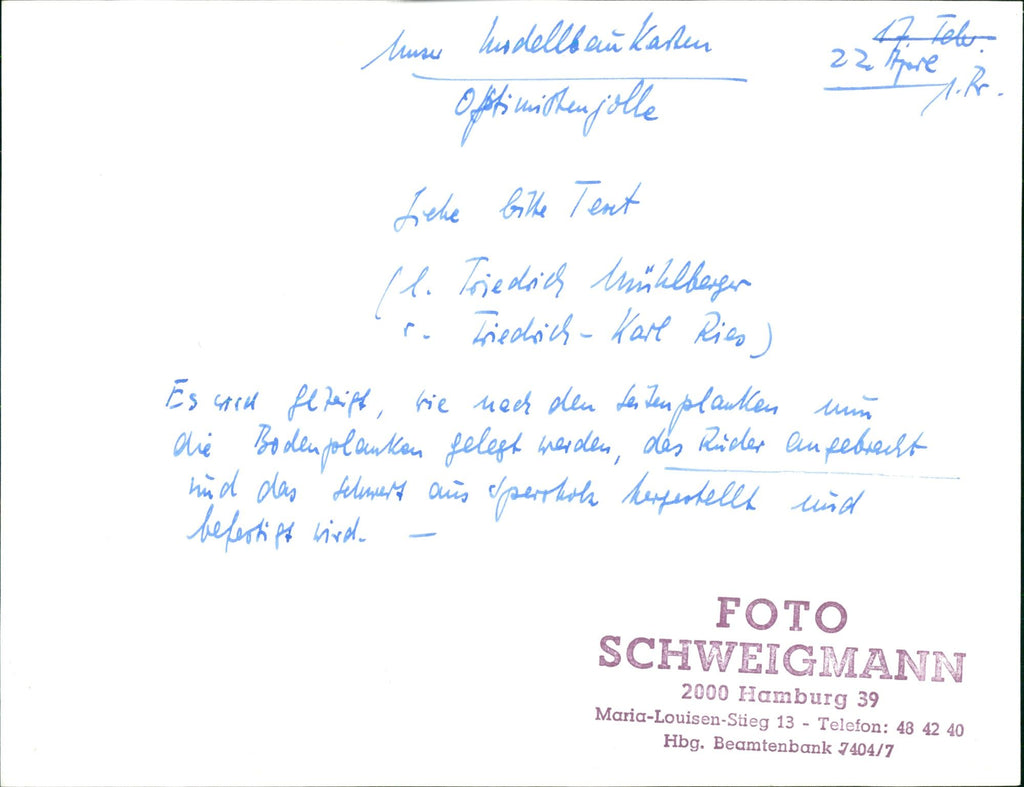 Unser Modellbau Kasten
17. Febr.
22. April
1. Pr.
Optimistenjolle
Siehe bitte Text
(l. Friedrich Mühlberger
r. Friedrich-Karl Ries)
Es wird gezeigt, wie nach den Seitenplanken nun
die Bodenplanken gelegt werden, das Ruder angebracht
und das Schwert aus Sperrholz hergestellt und
befestigt wird. —
FOTO
SCHWEIGMANN
2000 Hamburg 39
Maria-Louisen-Stieg 13 - Telefon: 48 42 40
Hbg. Beamtenbank 7404/7